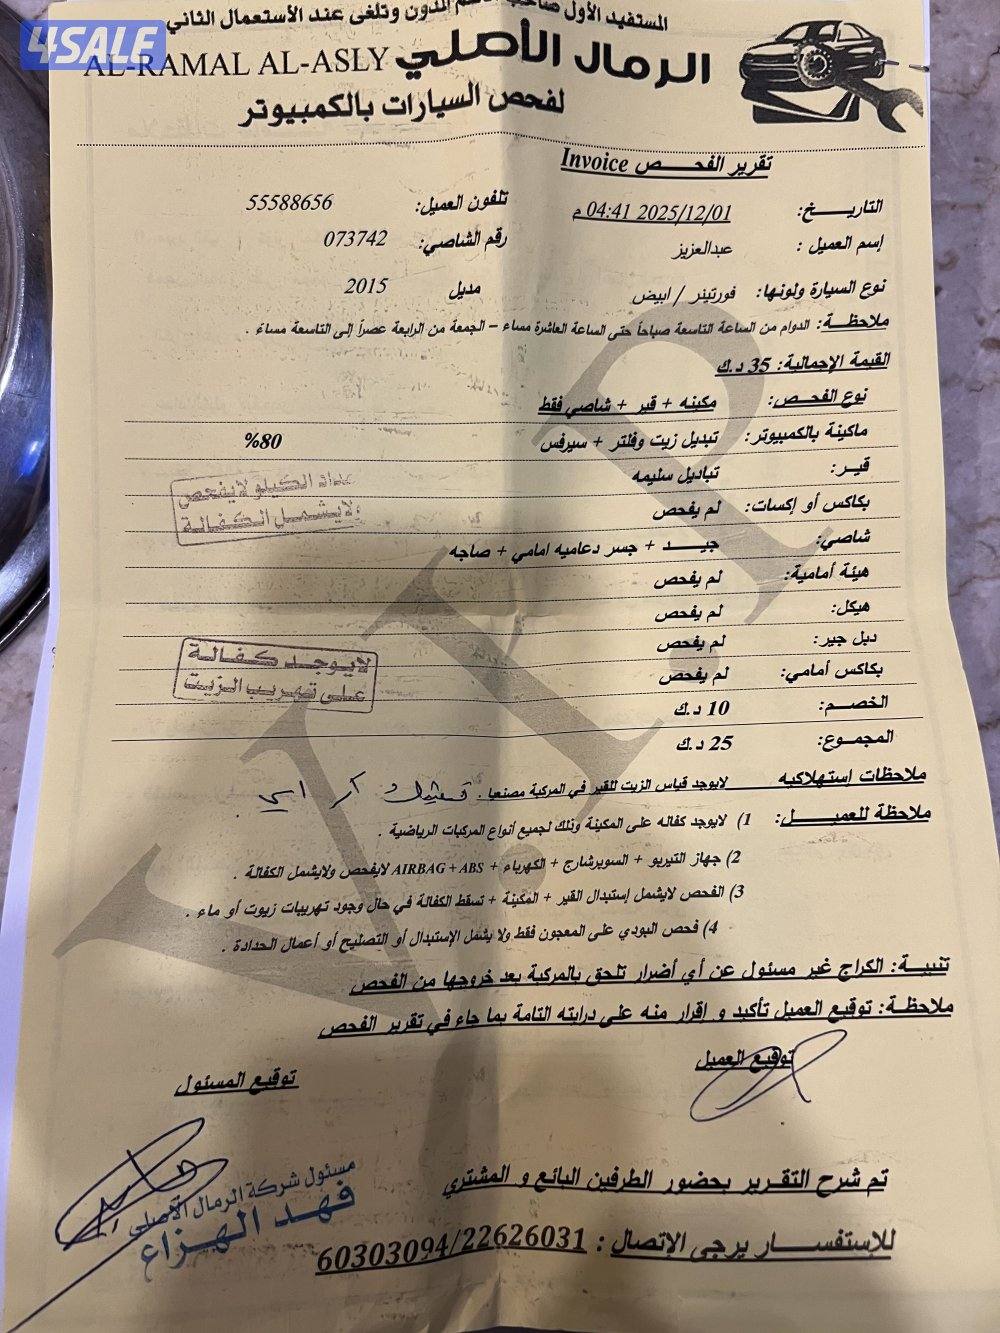 4SALE
المستفيد الأول صاحب الأسم المدون وتلغى عند الأستعمال الثاني
الرمال الأصلي AL-RAMAL AL-ASLY
لفحص السيارات بالكمبيوتر
تقرير الفحـــص Invoice
التاريـــخ: 2025/12/01 04:41 م
تلفون العميل: 55588656
إسم العميل : عبدالعزيز
رقم الشاصي: 073742
نوع السيارة ولونها: فورتينر / ابيض
مديل 2015
ملاحظـــة: الدوام من الساعة التاسعة صباحاً حتى الساعة العاشرة مساء – الجمعة من الرابعة عصراً إلى التاسعة مساءً .
القيمة الإجمالية: 35 د.ك
نوع الفحـص: مكينه + قير + شاصي فقط
ماكينة بالكمبيوتر: تبديل زيت وفلتر + سيرفس %80
قير: تباديل سليمه
عداد الكيلو لايفحص
ولايشمل الكفالة
بكاكس أو إكسات: لم يفحص
شاصي: جيـــد + جسر دعاميه امامي + صاجه
هيئة أمامية: لم يفحص
هيكل: لم يفحص
دبل جير: لم يفحص
لايوجد كفالة
على تهريب الزيت
بكاكس أمامي: لم يفحص
الخصـــم: 10 د.ك
المجمـوع: 25 د.ك
ملاحظات إستهلاكيه لايوجد قياس الزيت للقير في المركبة مصنعيا .
ملاحظة للعميـــل: 1) لايوجد كفاله على المكينة وذلك لجميع أنواع المركبات الرياضية .
2) جهاز التيربو + السوبرشارج + الكهرباء + AIRBAG + ABS لايفحص ولايشمل الكفالة .
3) الفحص لايشمل إستبدال القير + المكينة + تسقط الكفالة في حال وجود تهريبات زيوت أو ماء .
4) فحص البودي على المعجون فقط ولا يشمل الإستبدال أو التصليح أو أعمال الحدادة .
تنبيـة: الكراج غير مسئول عن أي أضرار تلحق بالمركبة بعد خروجها من الفحص
ملاحظـة: توقيع العميل تأكيد و إقرار منه على درايته التامة بما جاء في تقرير الفحص
توقيع العميل
توقيع المسئول
مسئول شركة الرمال الأصلي
فهد الهزاع
تم شرح التقرير بحضور الطرفين البائع و المشتري
للإستفســـار يرجى الإتصال : 60303094/22626031
V.I.P